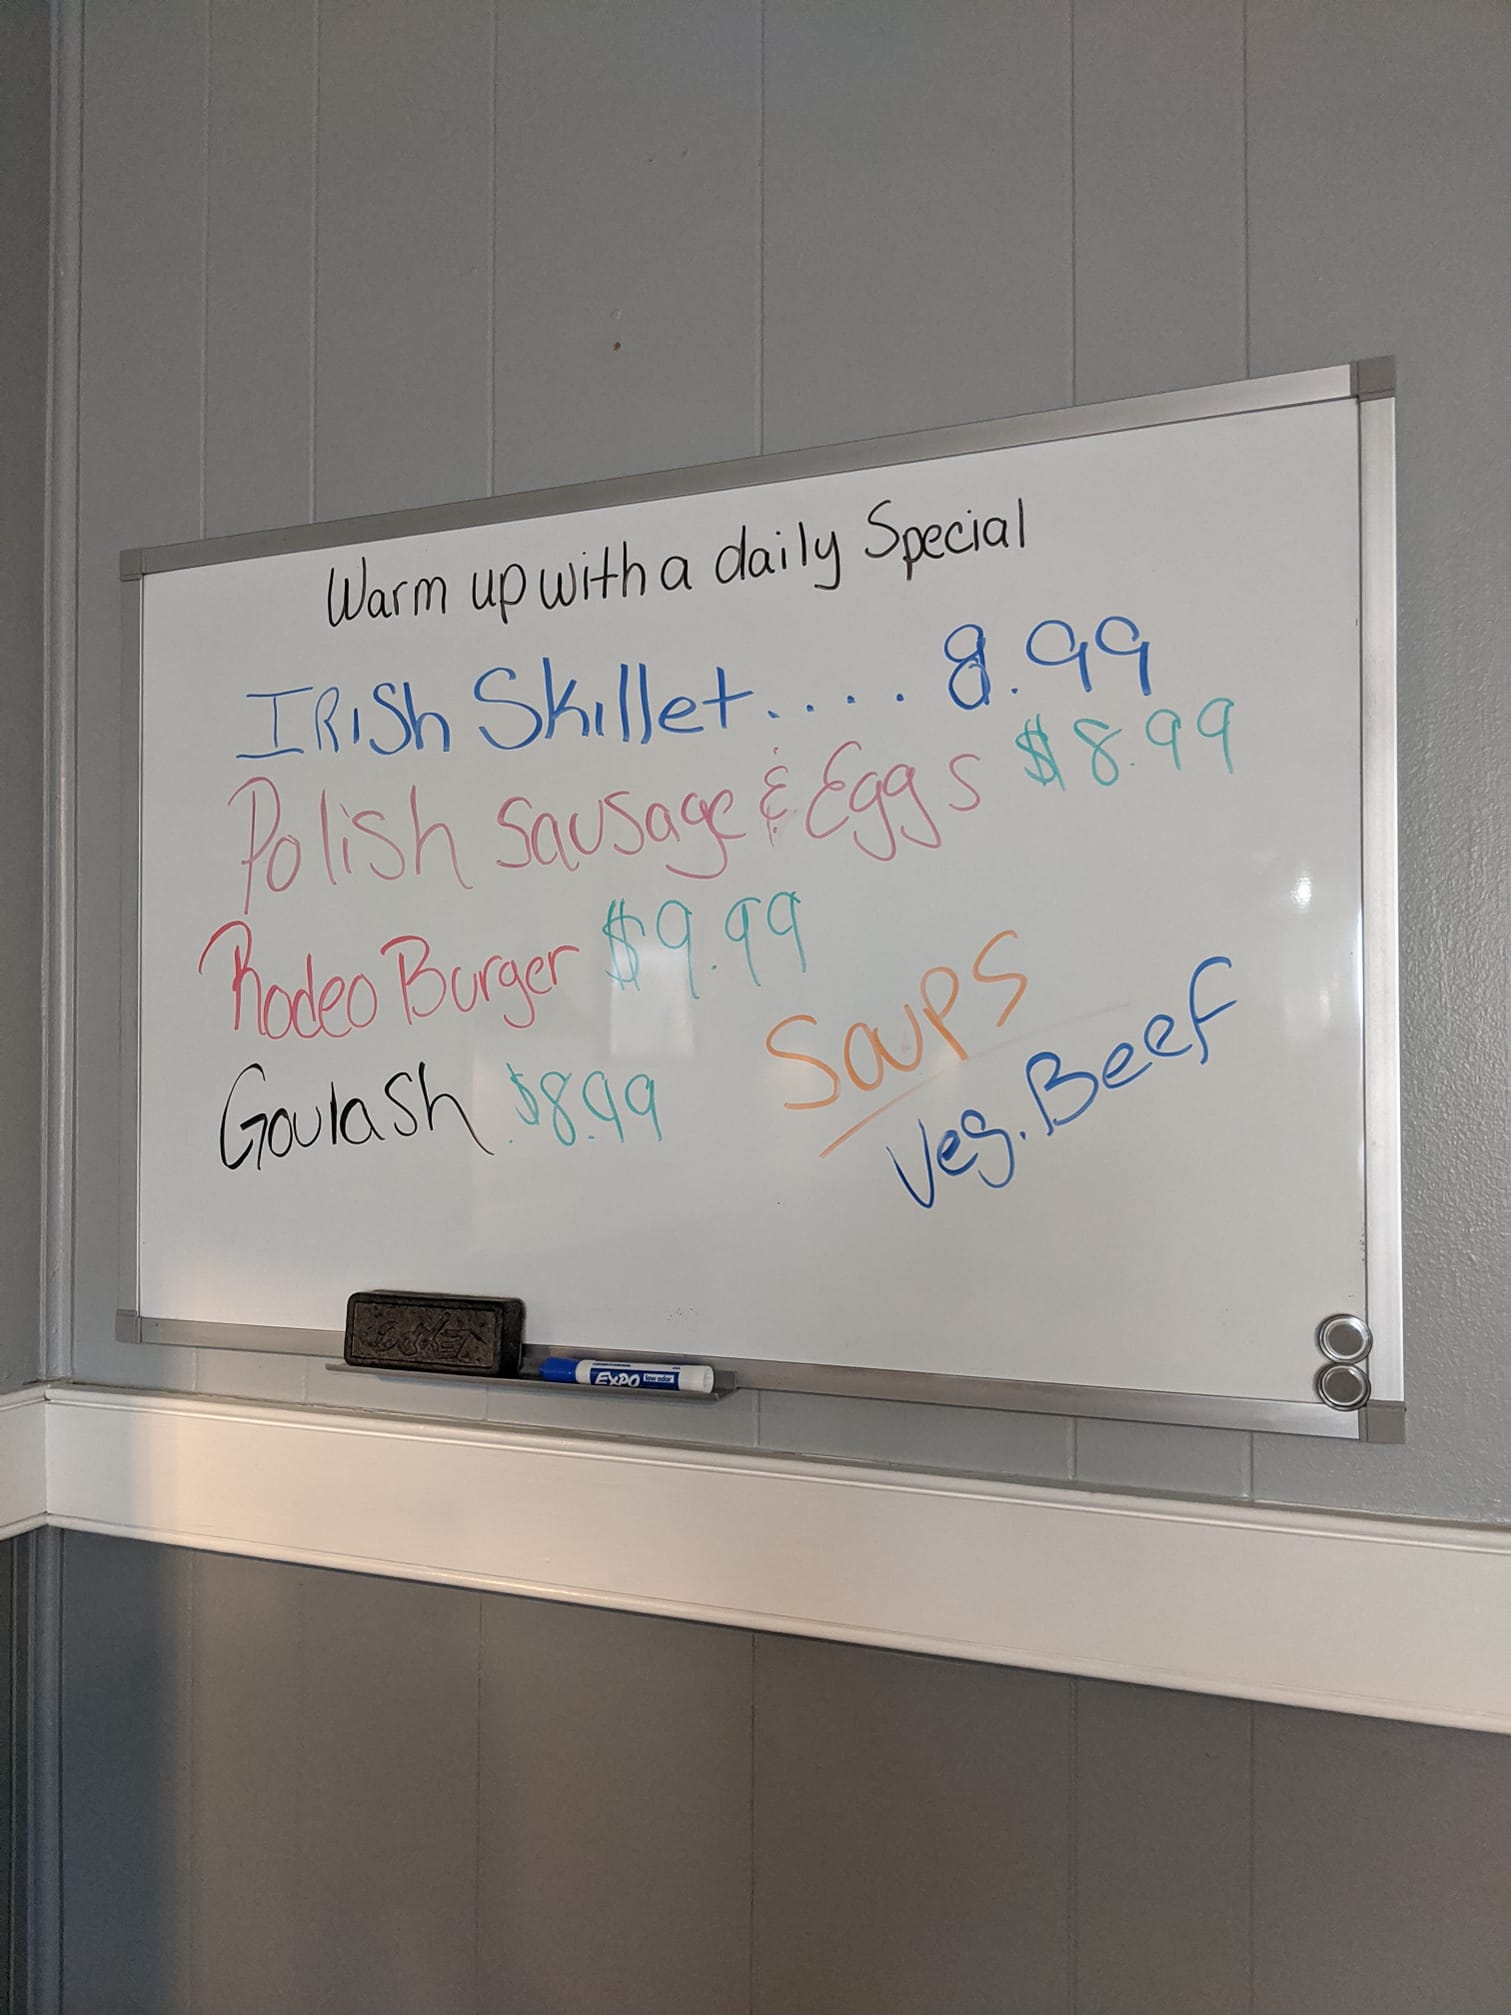 Warm up with a daily Special
IRISh Skillet.... 8.99
Polish Sausage & Eggs $8.99
Rodeo Burger $9.99
Goulash $8.99
Soups
Veg. Beef
EXPO low odor